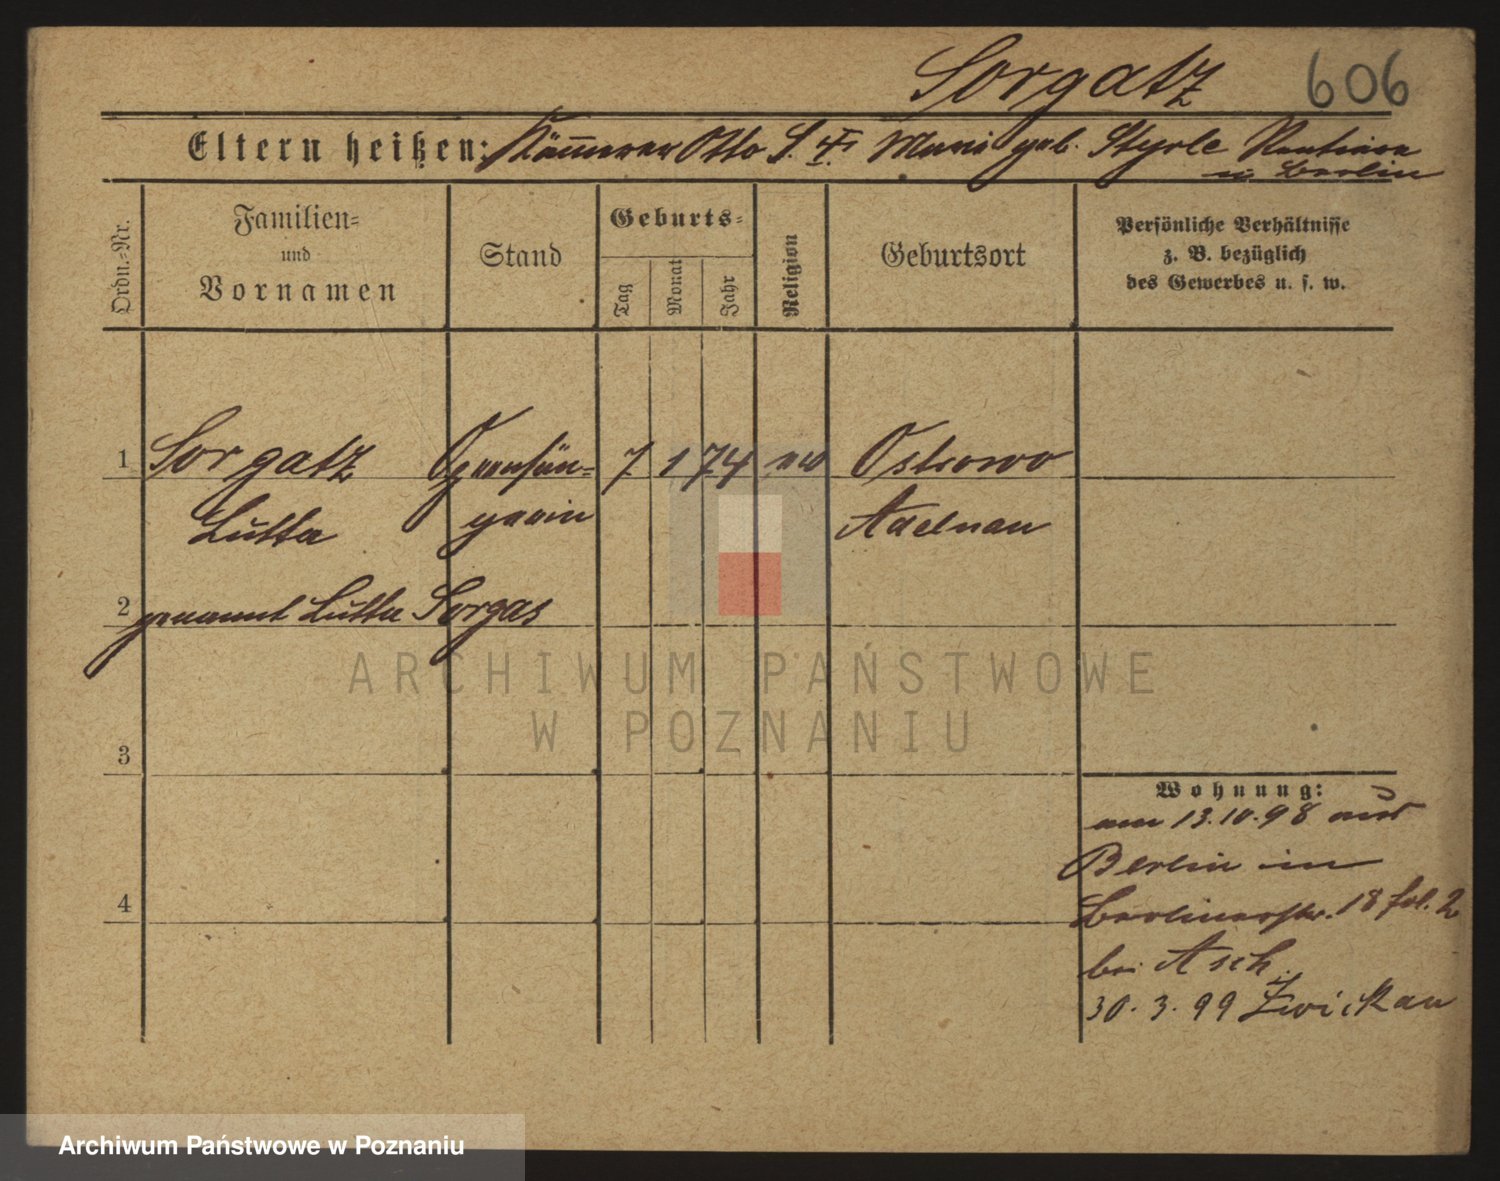 Sorgatz 606
Eltern heißen: Kämmerer Otto S. geb. Rentiere
in Berlin
Ordn.-Nr.
Familien-
und
Vornamen
Stand
Geburts-
Tag
Monat
Jahr
Religion
Geburtsort
Persönliche Verhältnisse
z. B. bezüglich
des Gewerbes u. s. w.
1 Sorgatz Opernsän- 7 1 74 ev Ostrowo
Lutta gerin Adelnau
2 genannt Lutta Sorgas
3
4
Wohnung:
am 13.10.98 aus
Berlin in
Berlinerstr. 18 fol. 2
bei Asch
30.3.99 Zwickau
ARCHIWUM PAŃSTWOWE
W POZNANIU
Archiwum Państwowe w Poznaniu